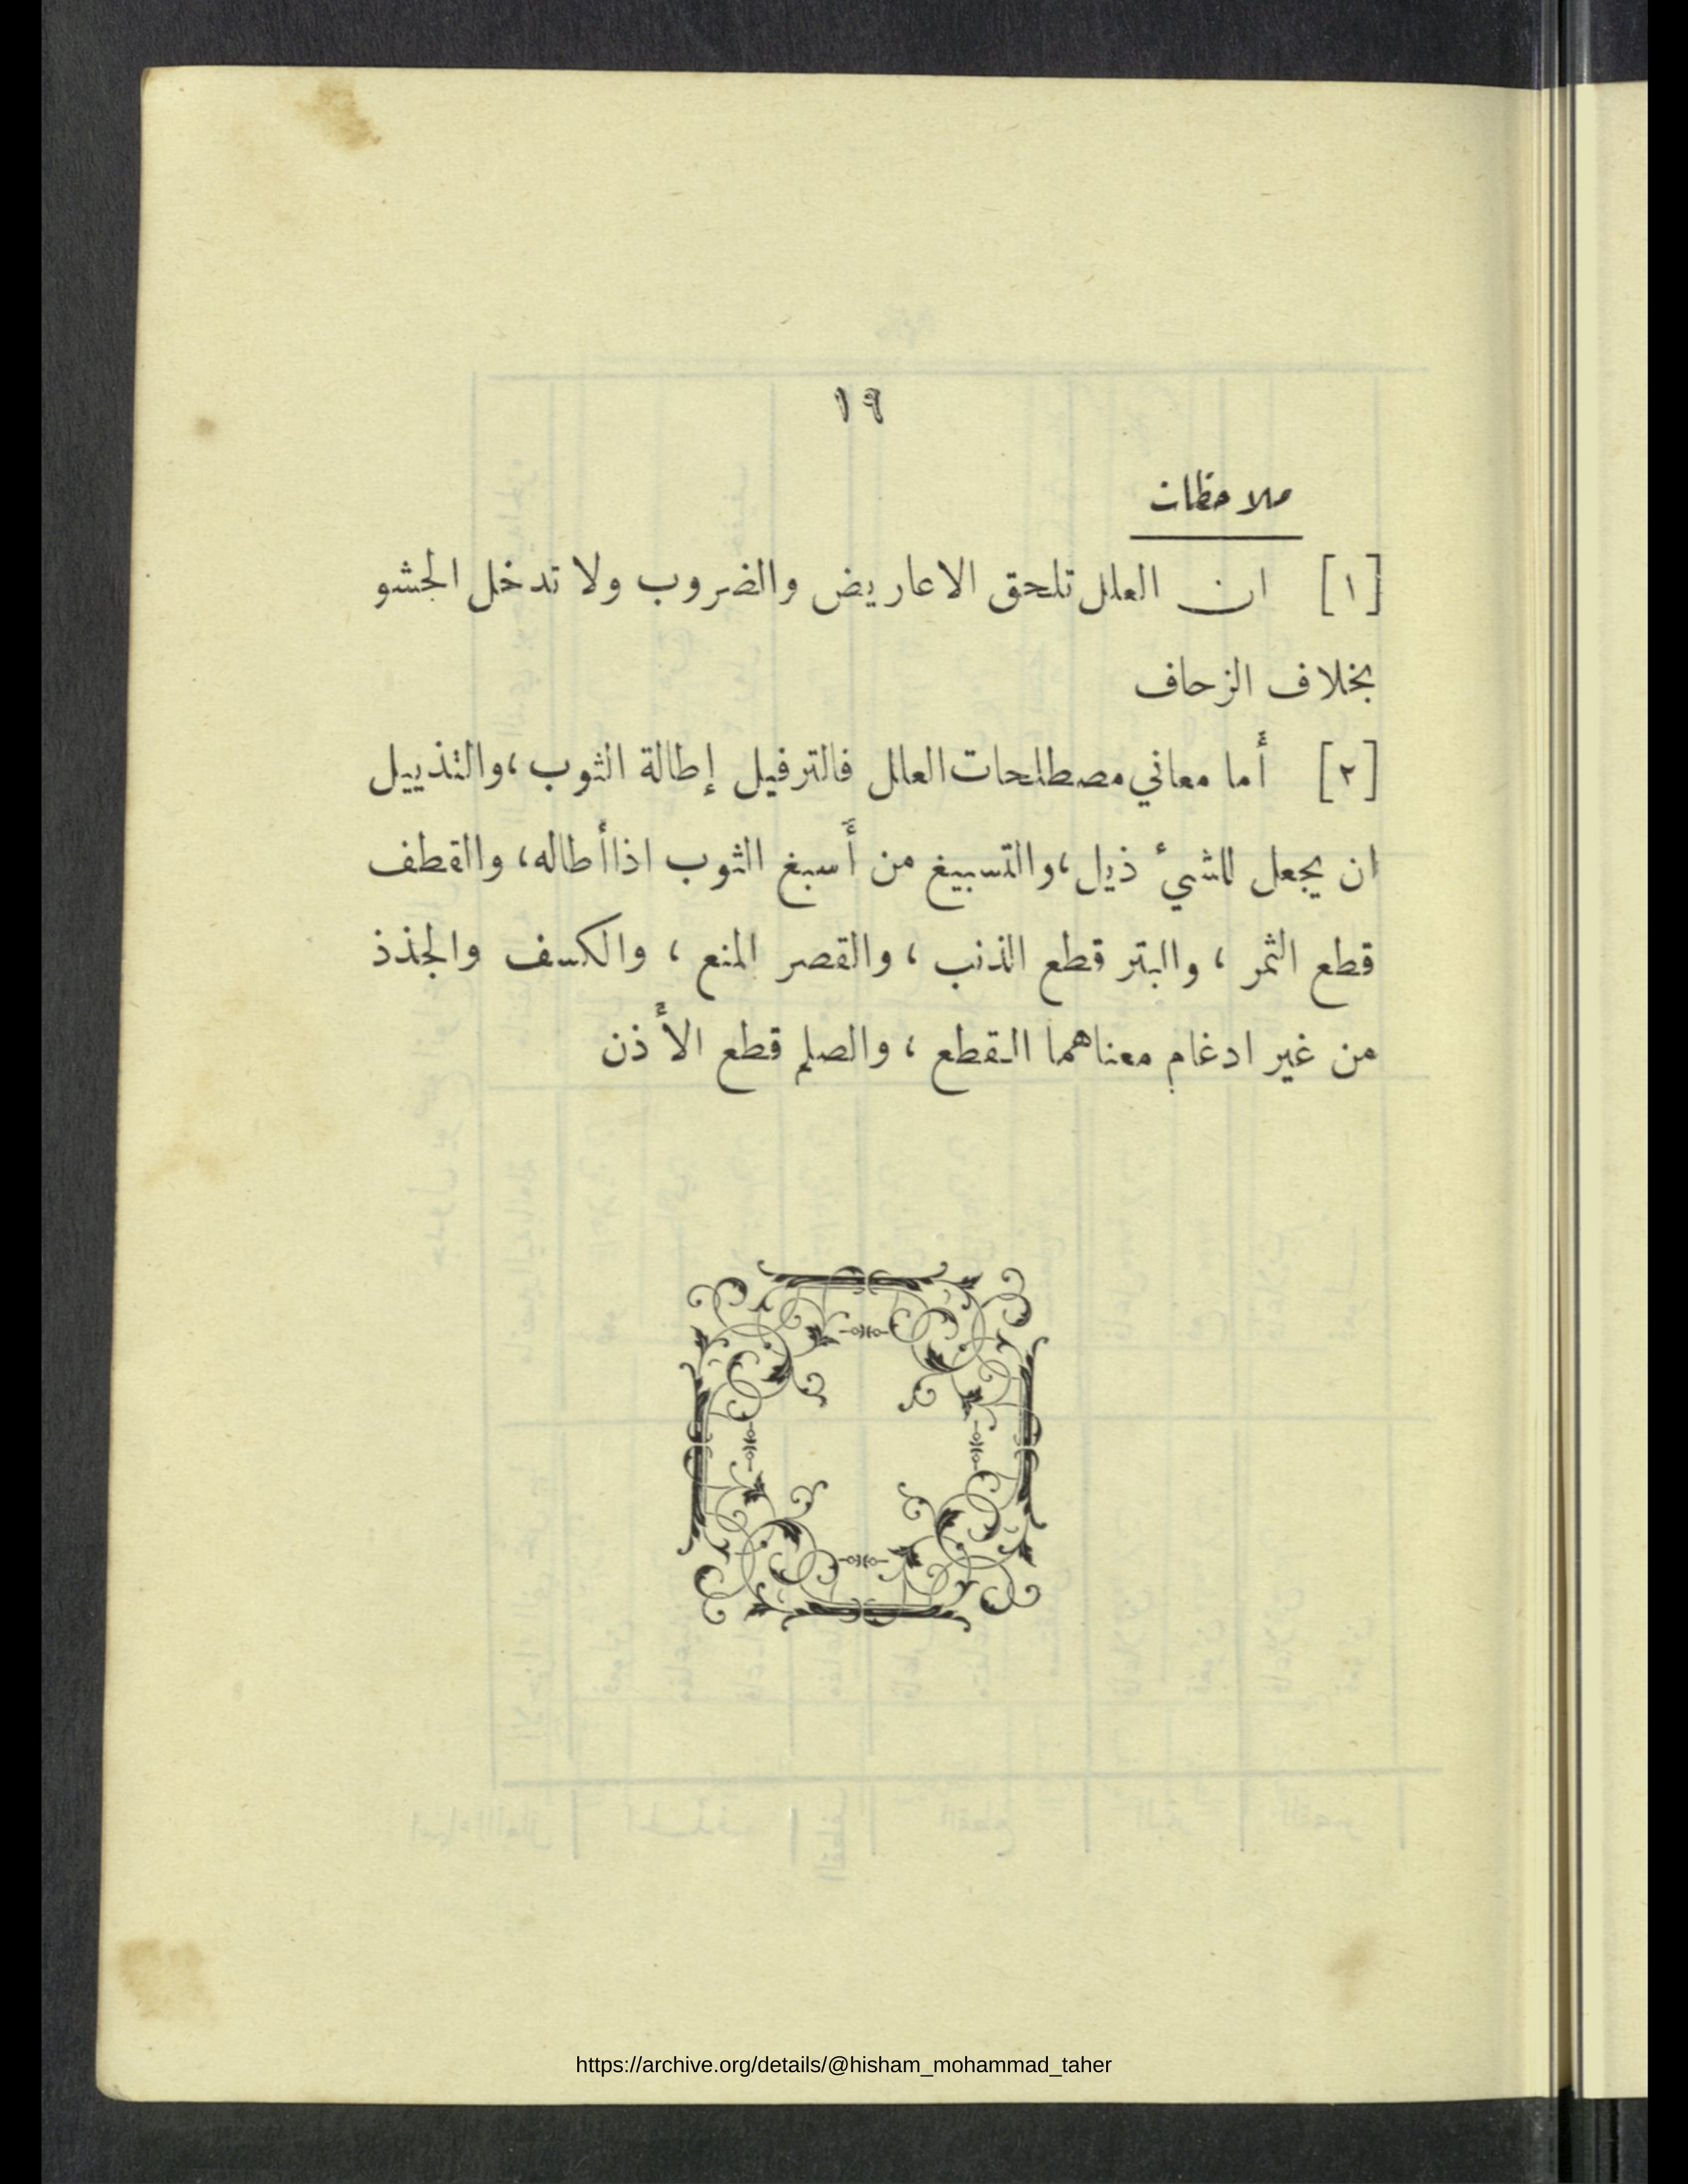 ١٩
ملاحظات
[١] ان العلل تلحق الاعاريض والضروب ولا تدخل الحشو
بخلاف الزحاف
[٢] أما معاني مصطلحات العلل فالترفيل إطالة الثوب ، والتذييل
ان يجعل للشيء ذيل ، والتسبيغ من أسبغ الثوب اذا أطاله ، والقطف
قطع الثمر ، والبتر قطع الذنب ، والقصر المنع ، والكسف والجذذ
من غير ادغام معناهما القطع ، والصلم قطع الأذن
https://archive.org/details/@hisham_mohammad_taher